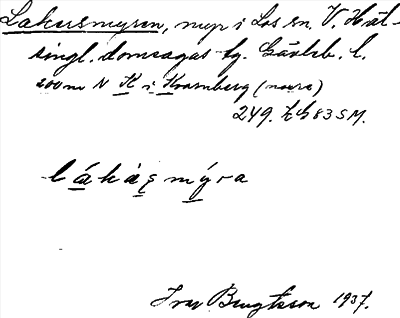 Lakusmyren, myr i Los sn. V. Häl-
singl. domsagas tg. Gävleb. l.
200 m N K i Kvarnberg (norra)
249. Eh 83 SM.
lákàsmýra
Ivar Bengtsson 1937.